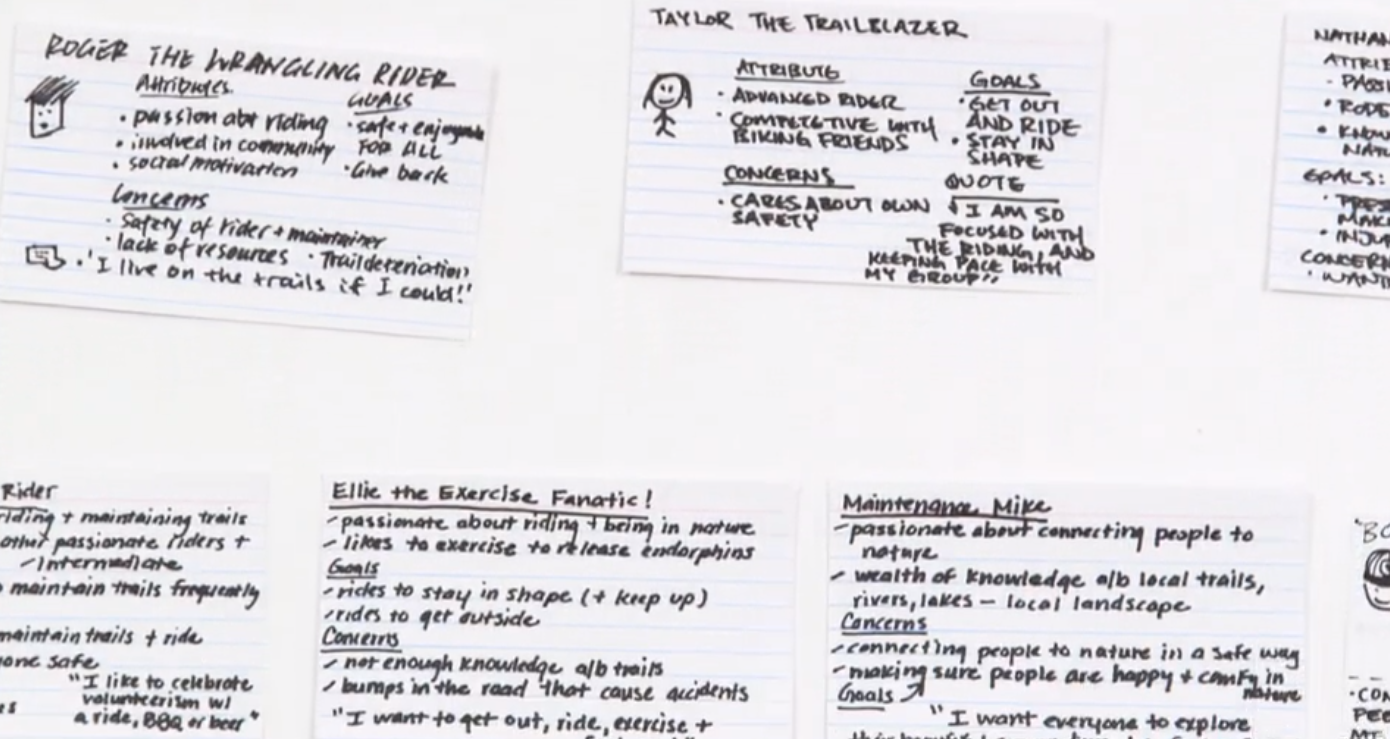 ROGER THE WRANGLING RIDER
Attributes
• passion abt riding
• involved in community
• social motivation
GOALS
• safe + enjoyable
FOR ALL
• Give back
Concerns
• Safety of rider + maintainer
• lack of resources • Trail deterioration
• "I live on the trails if I could!"
TAYLOR THE TRAILBLAZER
ATTRIBUTE
• ADVANCED RIDER
• COMPETETIVE WITH
BIKING FRIENDS
GOALS
• GET OUT
AND RIDE
• STAY IN
SHAPE
CONCERNS
• CARES ABOUT OWN
SAFETY
QUOTE
"I AM SO
FOCUSED WITH
THE RIDING, AND
KEEPING PACE WITH
MY GROUP"
NATHAN
ATTRIB
- PASSI
• RODE
• KNOW
NATU
GOALS:
MAK
• INJU
CONCERN
• WANT
Rider
riding + maintaining trails
other passionate riders +
/Intermediate
maintain trails frequently
maintain trails + ride
one safe
"I like to celebrate
volunteerism w/
a ride, BBQ or beer"
Ellie the Exercise Fanatic!
- passionate about riding + being in nature
- likes to exercise to release endorphins
Goals
- rides to stay in shape (+ keep up)
- rides to get outside
Concerns
- not enough knowledge a/b trails
- bumps in the road that cause accidents
"I want to get out, ride, exercise +
Maintenance Mike
- passionate about connecting people to
nature
- wealth of knowledge a/b local trails,
rivers, lakes – local landscape
Concerns
- connecting people to nature in a safe way
- making sure people are happy + comfy in
nature
Goals
"I want everyone to explore
"BO
• CON
PEO
MT